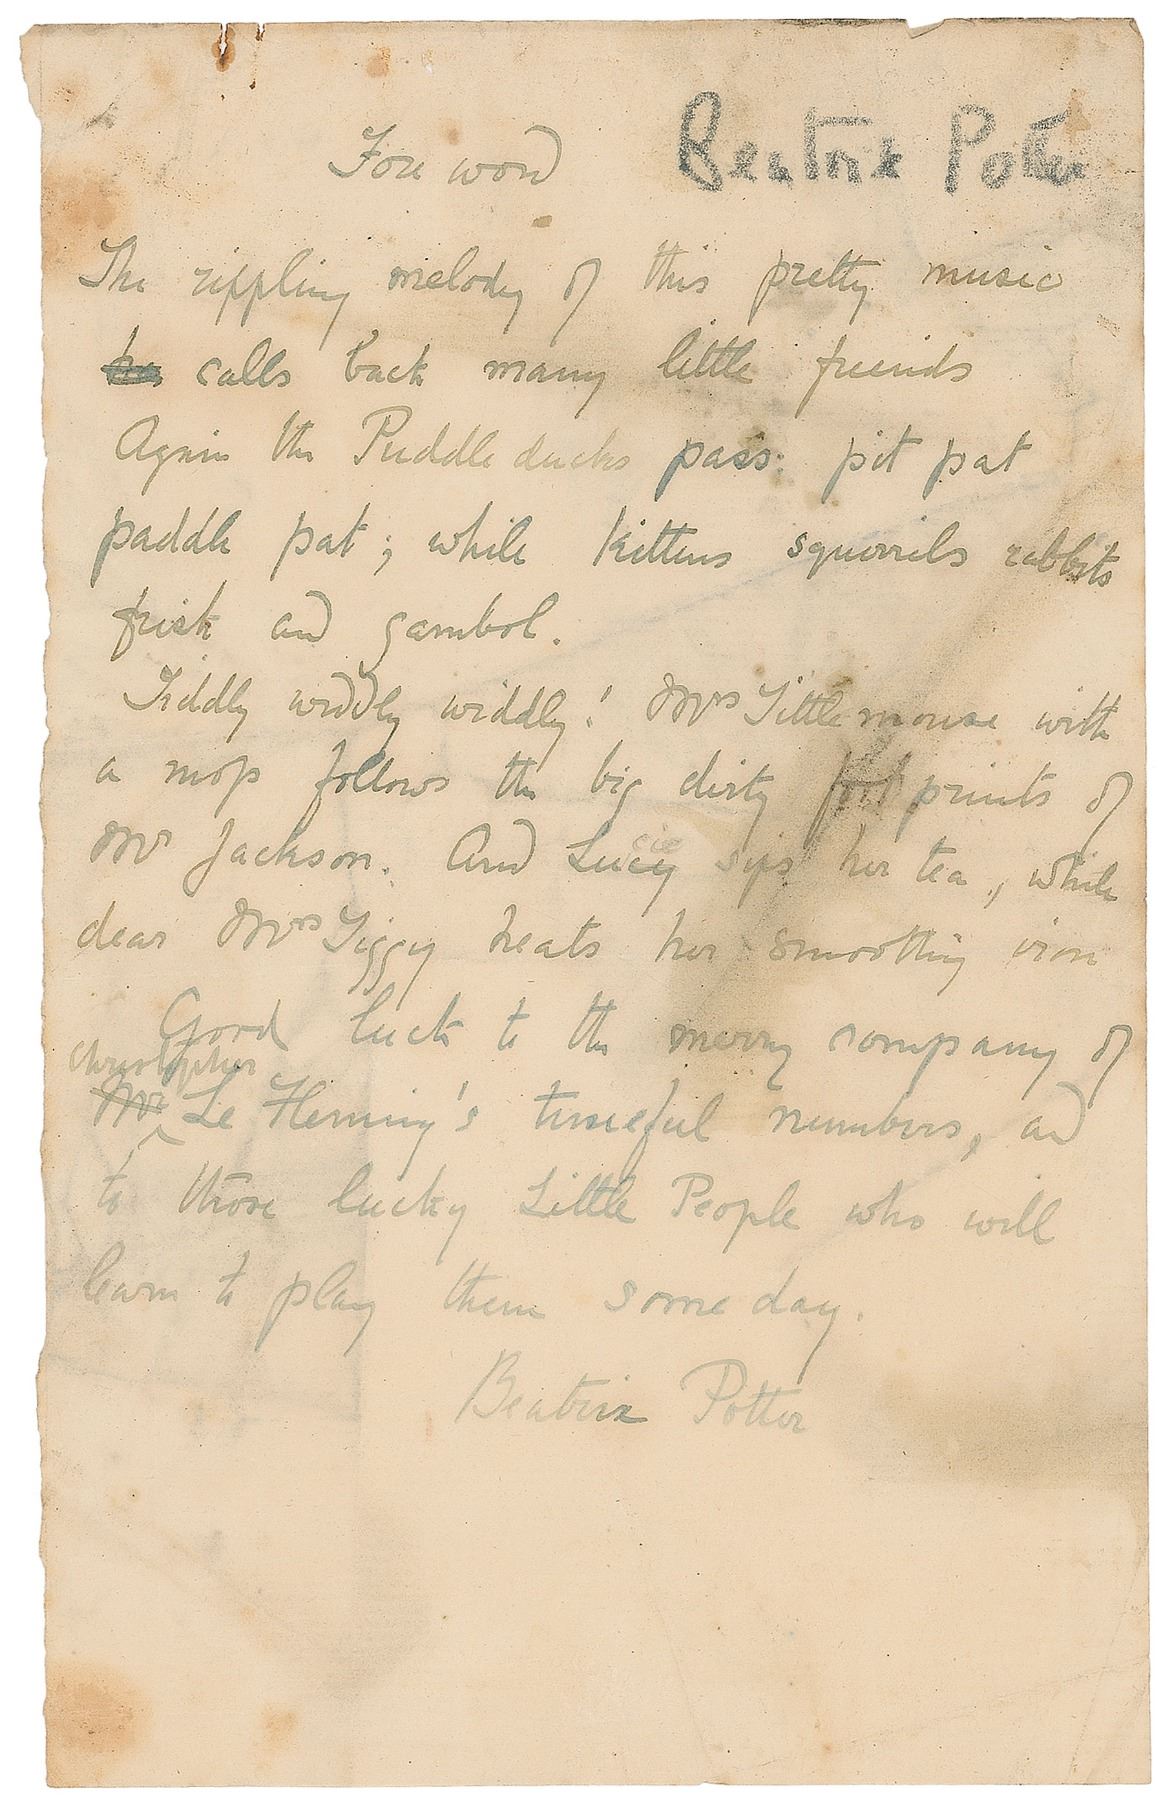 Fore word
Beatrix Potter
The rippling melody of this pretty music
calls back many little friends
Again the Puddle ducks pass: pit pat
paddle pat; while kittens squirrels rabbits
frisk and gambol.
Tiddly widdly widdly! Mrs Tittlemouse with
a mop follows the big dirty foot prints of
Mr Jackson. And Lucy sips her tea, while
dear Mrs Tiggy heats her smoothing iron
Good luck to the merry company of
Christopher
Mr Le Fleming's tuneful numbers, and
to those lucky Little People who will
learn to play them some day.
Beatrix Potter